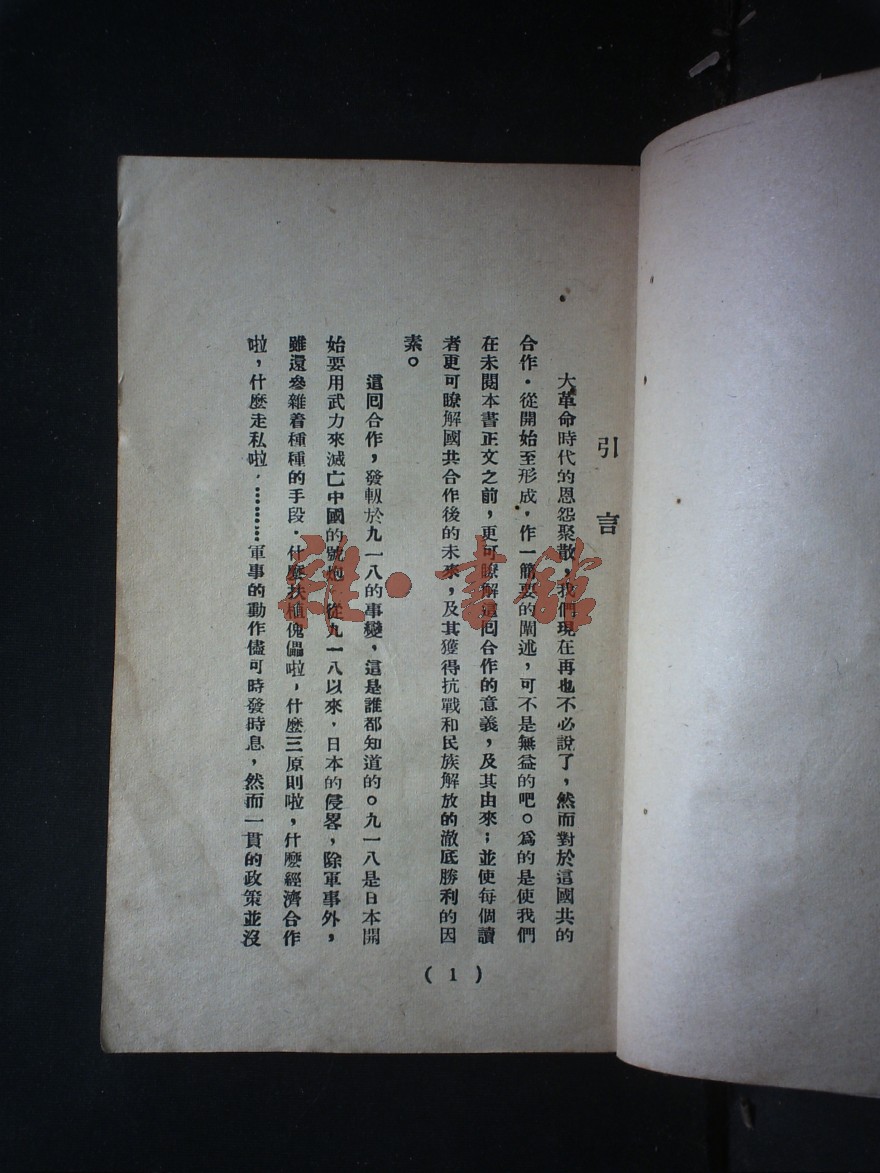 引言
大革命時代的恩怨聚散，我們現在再也不必說了，然而對於這國共的
合作．從開始至形成，作一簡要的闡述，可不是無益的吧。爲的是使我們
在未閱本書正文之前，更可瞭解這囘合作的意義，及其由來；並使每個讀
者更可瞭解國共合作後的未來，及其獲得抗戰和民族解放的澈底勝利的因
素。
這囘合作，發軔於九一八的事變，這是誰都知道的。九一八是日本開
始要用武力來滅亡中國的號炮　從九一八以來．日本的侵畧，除軍事外，
雖還參雜着種種的手段．什麼扶植傀儡啦，什麼三原則啦，什麼經濟合作
啦，什麼走私啦．………軍事的動作儘可時發時息，然而一貫的政策並沒
( 1 )
雜·書館